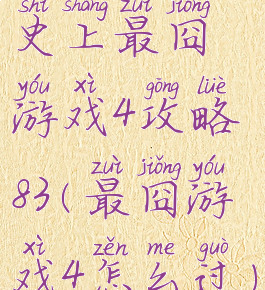 shǐ shàng zuì jiǒng
史上最囧
yóu xì gōng lüè
游戏4攻略
zuì jiǒng yóu
83(最囧游
xì zěn me guò
戏4怎么过)